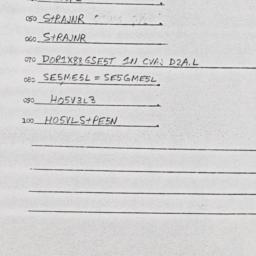 050 S+RAJNR
060 S+RAJNR
070 DOP1X88GSE5T 1N CVA. D2A.L
080 SE5ME5L = SE5GME5L
090 HO5V3L3
100 HO5VLS+PE5N